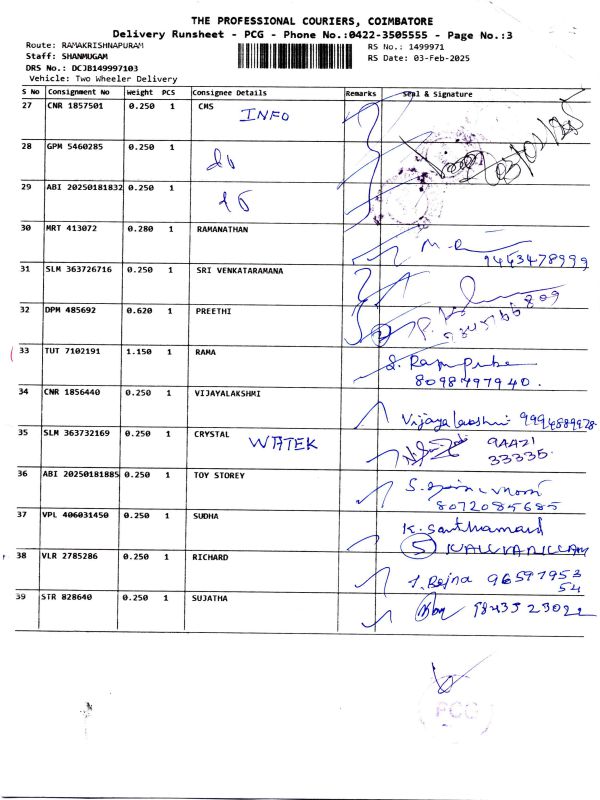 THE PROFESSIONAL COURIERS, COIMBATORE
Delivery Runsheet - PCG - Phone No.:0422-3505555 - Page No.:3
Route: RAMAKRISHNAPURAM RS No.: 1499971
Staff: SHANMUGAM RS Date: 03-Feb-2025
DRS No.: DCJB149997103
Vehicle: Two Wheeler Delivery
S No Consignment No Weight PCS Consignee Details Remarks Seal & Signature
27 CNR 1857501 0.250 1 CMS
INFO
28 GPM 5460285 0.250 1
29 ABI 20250181832 0.250 1
30 MRT 413072 0.280 1 RAMANATHAN
9443478999
31 SLM 363726716 0.250 1 SRI VENKATARAMANA
32 DPM 485692 0.620 1 PREETHI
33 TUT 7102191 1.150 1 RAMA
8098797940.
34 CNR 1856440 0.250 1 VIJAYALAKSHMI
Vijayalakshmi 9994889978
35 SLM 363732169 0.250 1 CRYSTAL
WATEK
33335
36 ABI 20250181885 0.250 1 TOY STOREY
8072085685
37 VPL 406031450 0.250 1 SUDHA
38 VLR 2785286 0.250 1 RICHARD
39 STR 828640 0.250 1 SUJATHA
PCG